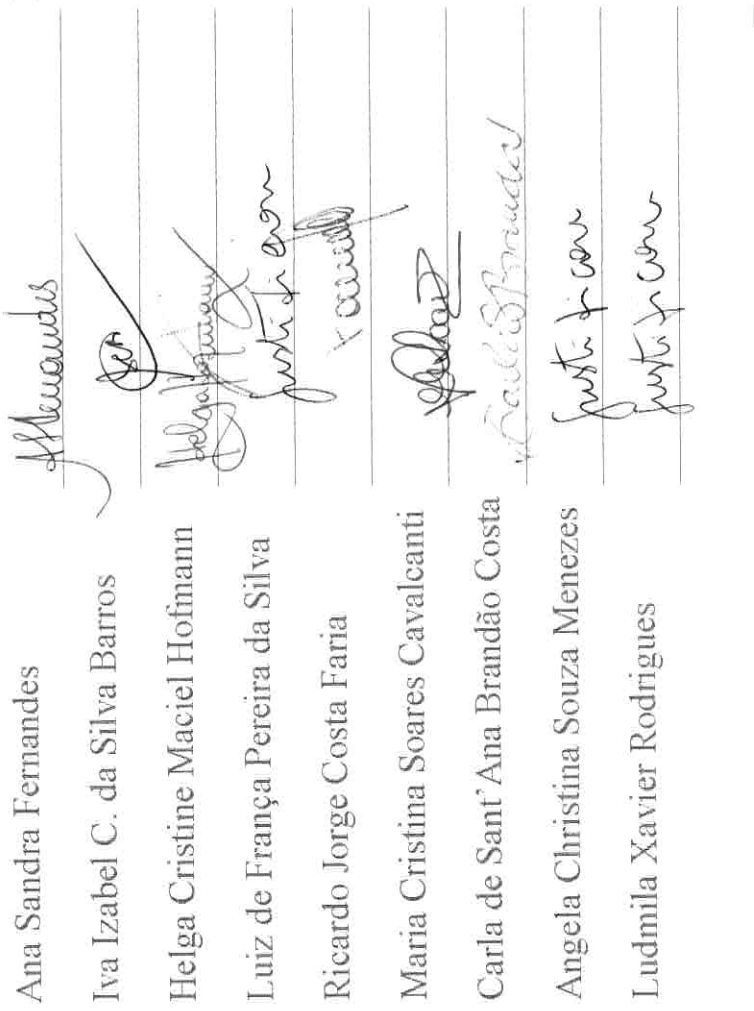 Ana Sandra Fernandes
Iva Izabel C. da Silva Barros
Helga Cristine Maciel Hofmann Helga Hofmann
Luiz de França Pereira da Silva Justificou
Ricardo Jorge Costa Faria
Maria Cristina Soares Cavalcanti
Carla de Sant'Ana Brandão Costa
Angela Christina Souza Menezes Justificou
Ludmila Xavier Rodrigues Justificou